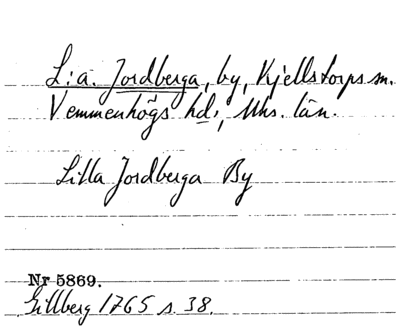 L:a. Jordberga, by, Kjellstorps sn.
Vemmenhögs hd., Mhs. län.
Lilla Jordberga By
Nr 5869.
Gillberg 1765 s. 38.